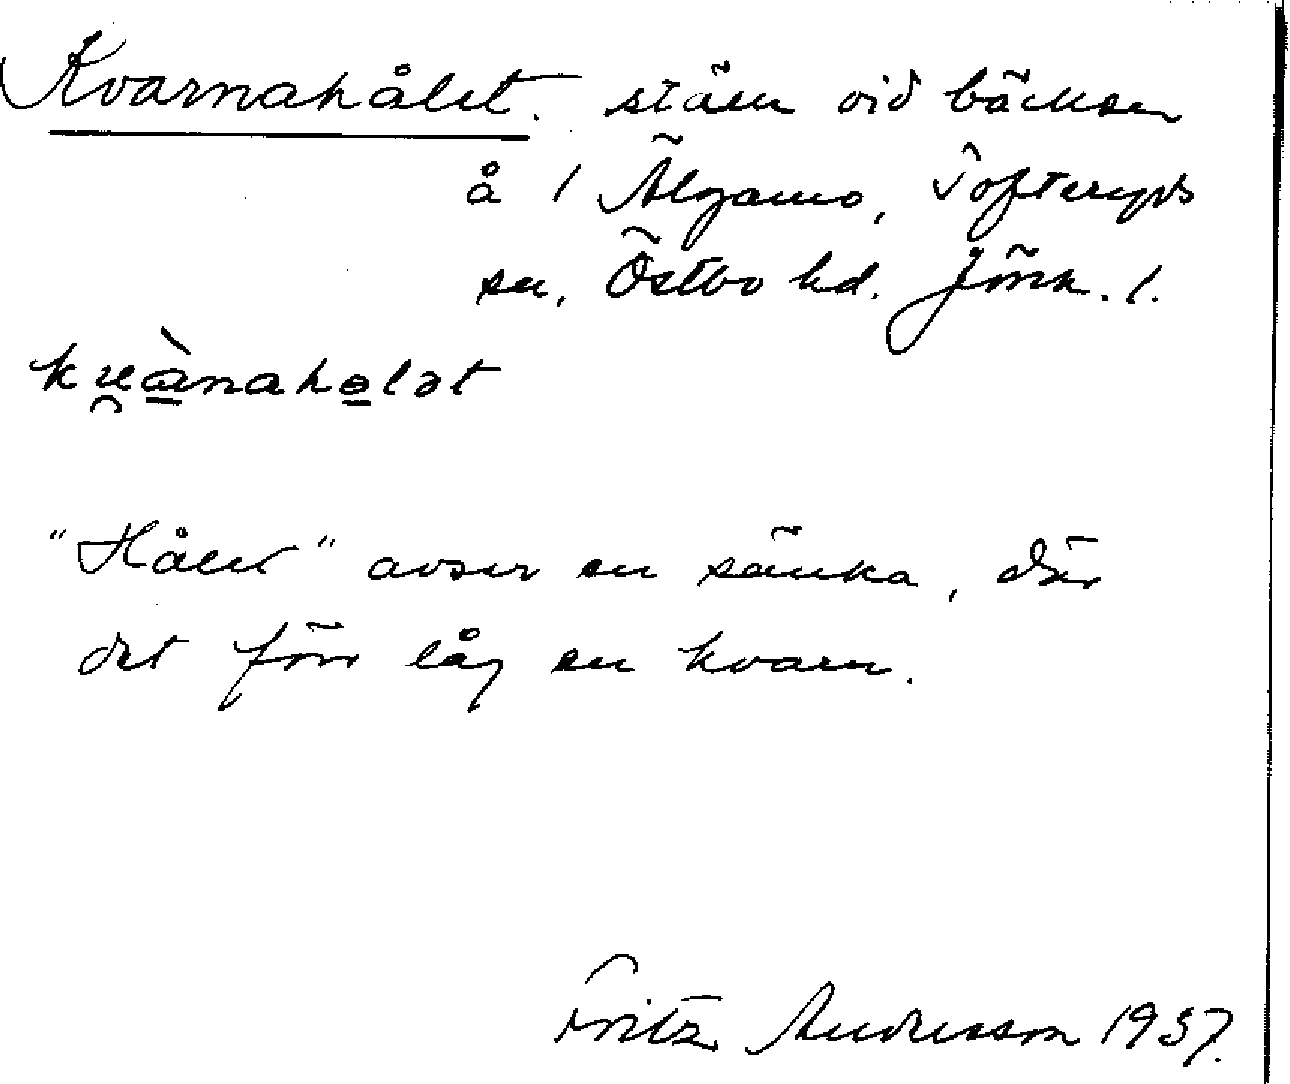 Kvarnahålet. ställe vid bäcken
å 1 Älgamo, Tofteryds
sn, Östbo hd. Jönk. l.
"Hålet" avser en sänka, där
det förr låg en kvarn.
Fritz Andersson 1937.